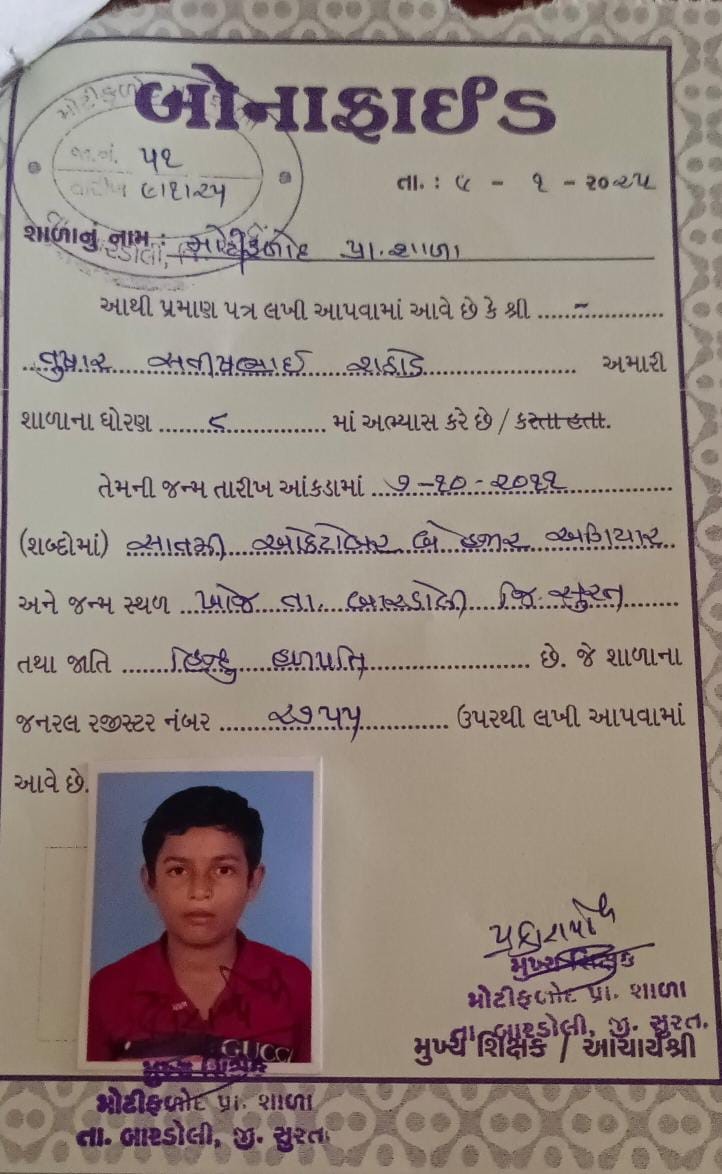 બોનાફાઈડ
જા.નં. ૫૧
તારીખ ૯/૧/૨૫
તા. : ૯ - ૧ - ૨૦૨૫
શાળાનું નામ : મોટીફળોદ પ્રા. શાળા
આથી પ્રમાણ પત્ર લખી આપવામાં આવે છે કે શ્રી ..................
તુષાર સતીષભાઈ રાઠોડ અમારી
શાળાના ધોરણ ૮ માં અભ્યાસ કરે છે / કરતા હતા.
તેમની જન્મ તારીખ આંકડામાં ૭-૧૦-૨૦૧૧
(શબ્દોમાં) સાતમી ઓક્ટોબર બે હજાર અગિયાર
અને જન્મ સ્થળ ખોજ તા. બારડોલી જિ. સુરત
તથા જાતિ હિન્દુ હળપતિ છે. જે શાળાના
જનરલ રજીસ્ટર નંબર ૨૭૫૫ ઉપરથી લખી આપવામાં
આવે છે.
GUCCI
મુખ્ય શિક્ષક
મોટીફળોદ પ્રા. શાળા
તા. બારડોલી, જી. સુરત.
મુખ્ય શિક્ષક / આચાર્યશ્રી
મુખ્ય શિક્ષક
મોટીફળોદ પ્રા. શાળા
તા. બારડોલી, જી. સુરત.